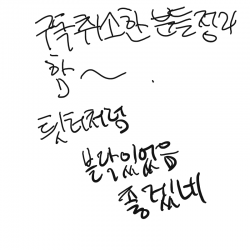 구독취소한 분들 정리
함~.
트터처럼
블라있었음
좋겠네